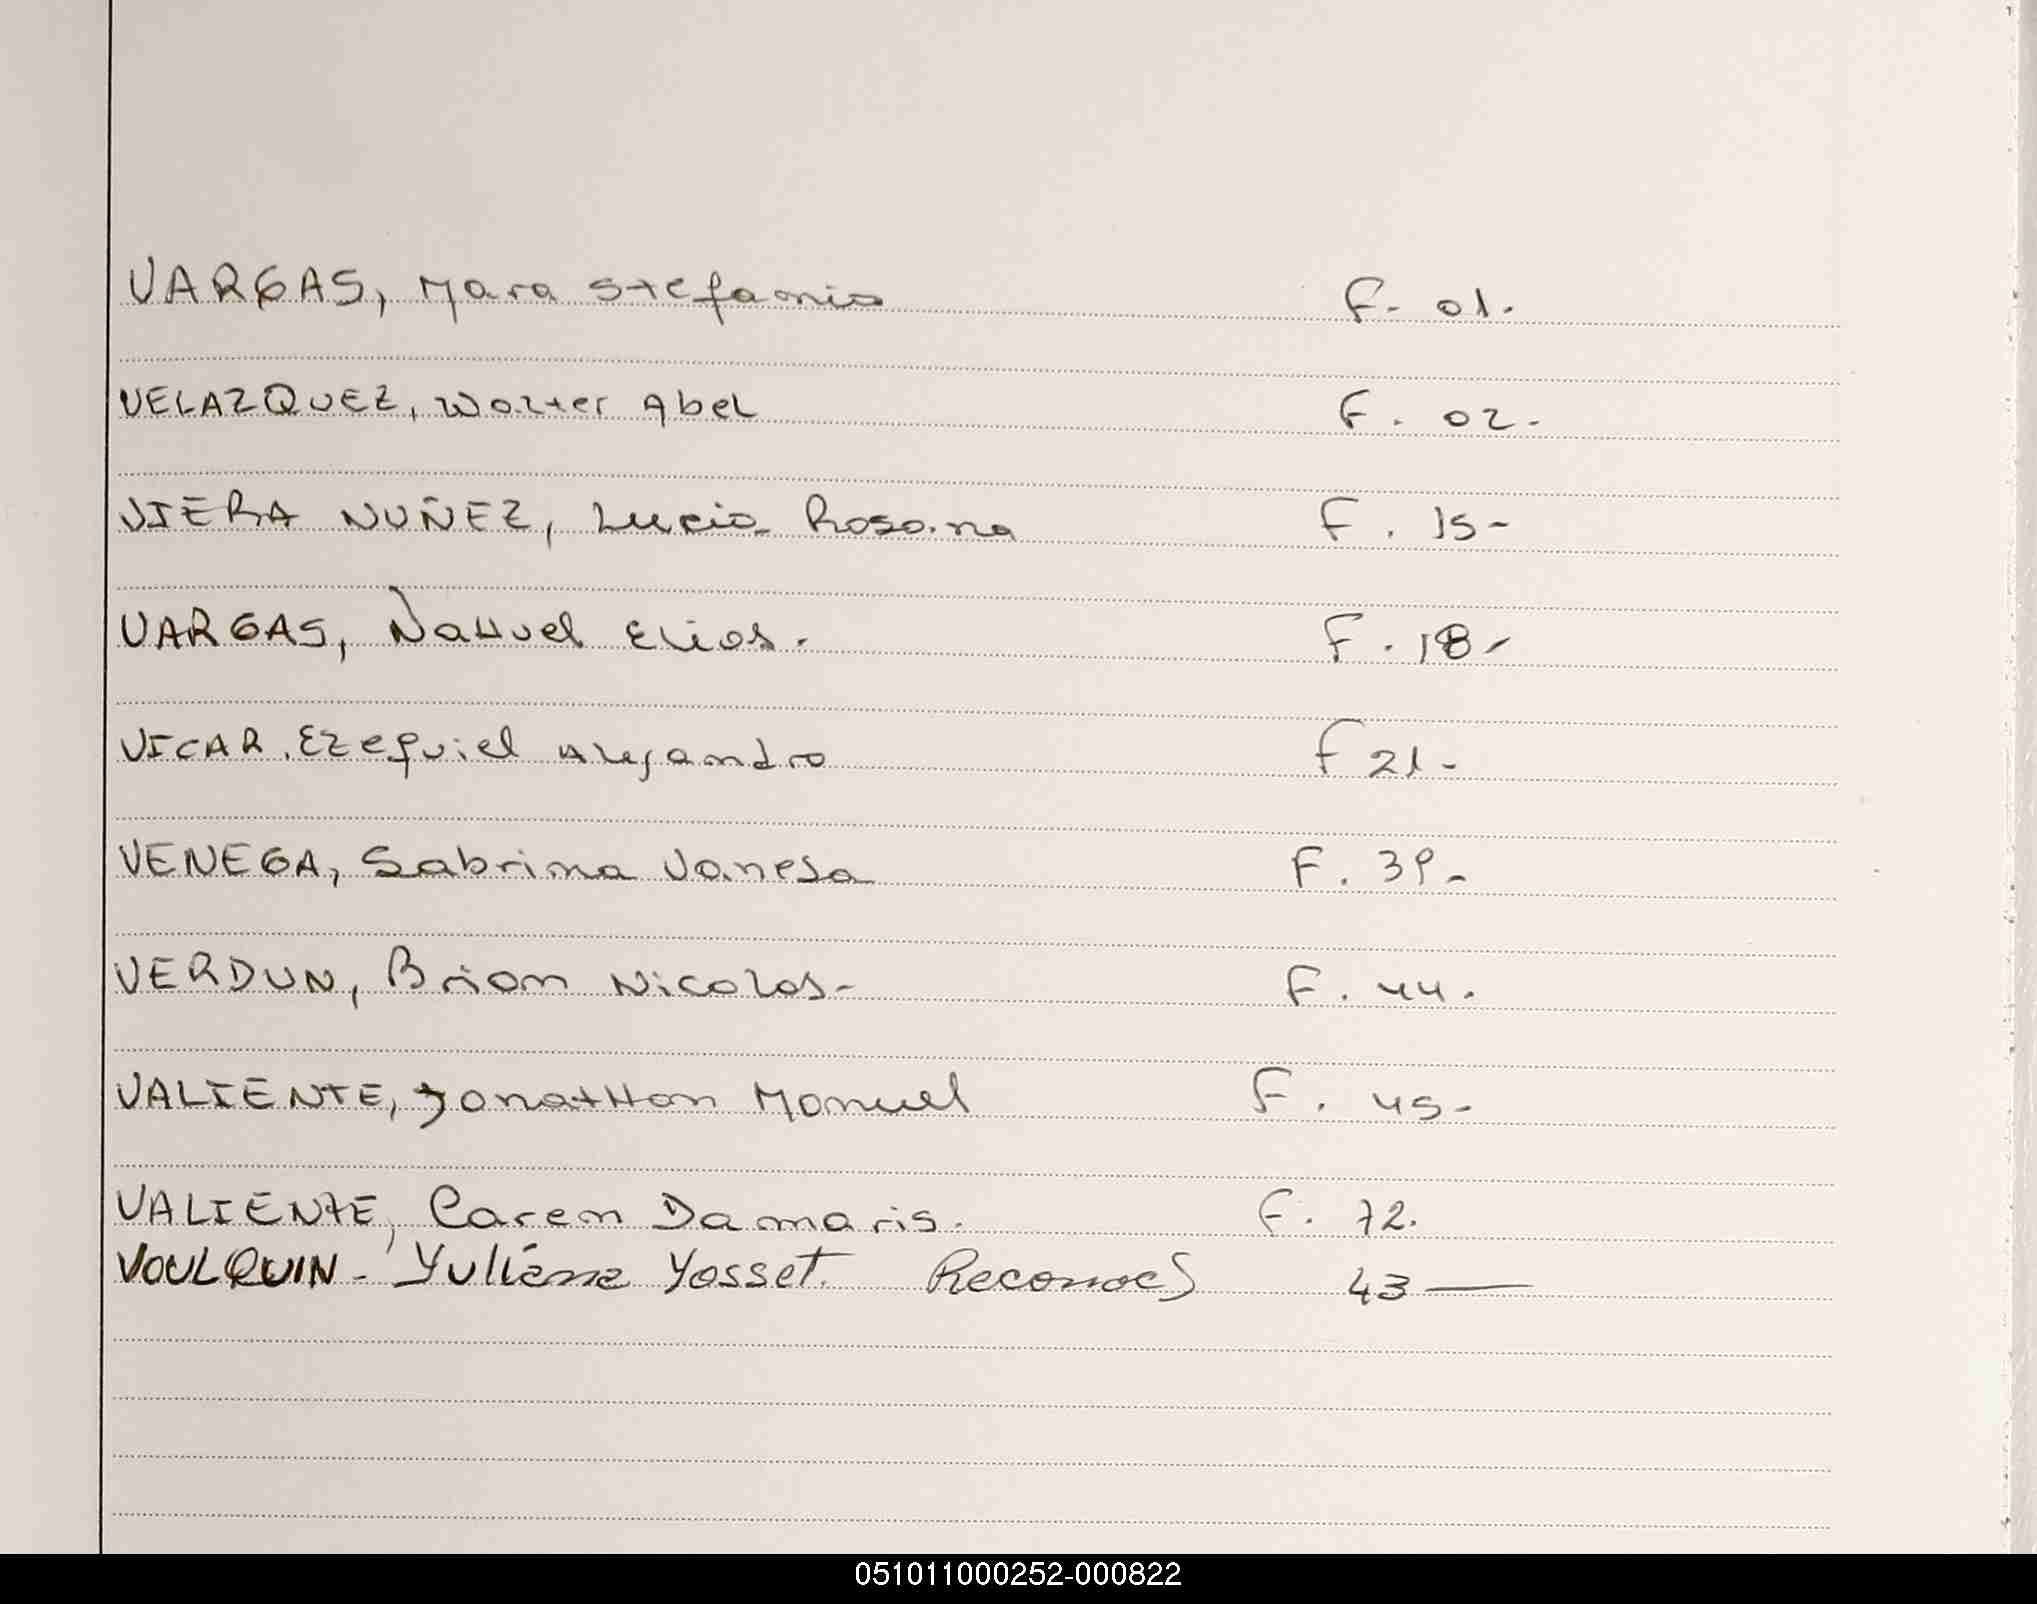 VARGAS, Mara Stefania F. 01.
VELAZQUEZ, Walter Abel F. 02.
VIERA NUÑEZ, Lucia Rosana F. 15-
VARGAS, NaHuel Elias. F. 18-
VICAR, Ezequiel Alejandro F 21-
VENEGA, Sabrina Vanesa F. 39-
VERDUN, Brian Nicolas- F. 44.
VALIENTE, JonatHan Manuel F. 45-
VALIENTE, Caren Damaris. F. 72.
VOULQUIN - Yosset. 43 —
051011000252-000822